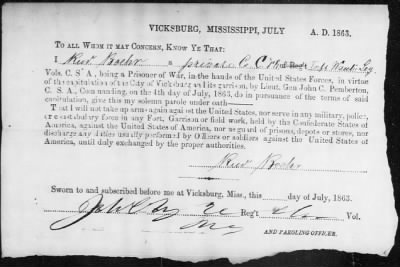 VICKSBURG, MISSISSIPPI, JULY A. D. 1863.
TO ALL WHOM IT MAY CONCERN, KNOW YE THAT:
I a private Co of Reg't
Vols. C. S. A., being a Prisoner of War, in the hands of the United States Forces, in virtue
of the capitulation of the City of Vicksburg and its garrison, by Lieut. Gen John C. Pemberton,
C. S. A., Commanding, on the 4th day of July, 1863, do in pursuance of the terms of said
capitulation, give this my solemn parole under oath
That I will not take up arms again against the United States, nor serve in any military, police,
or constabulary force in any Fort, Garrison or field work, held by the Confederate States of
America, against the United States of America, nor as guard of prisons, depots or stores, nor
discharge any duties usually performed by Officers or soldiers against the United States of
America, until duly exchanged by the proper authorities.
Sworn to and subscribed before me at Vicksburg, Miss., this day of July, 1863.
Reg't Vol.
AND PAROLING OFFICER.